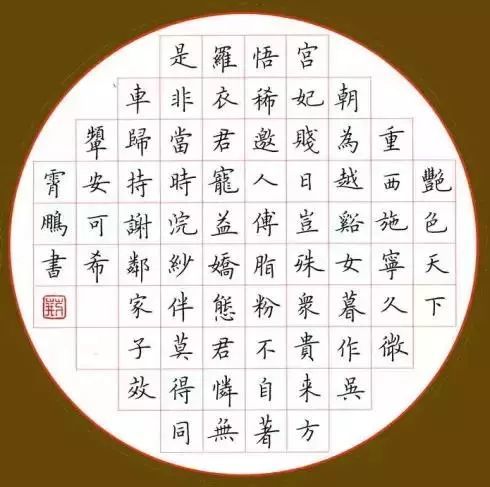 豔色天下
重西施寧久微
朝為越谿女暮作吳
宮妃賤日豈殊眾貴來方
悟稀邀人傅脂粉不自著
羅衣君寵益嬌態君憐無
是非當時浣紗伴莫得同
車歸持謝鄰家子效
顰安可希
霄鵬書